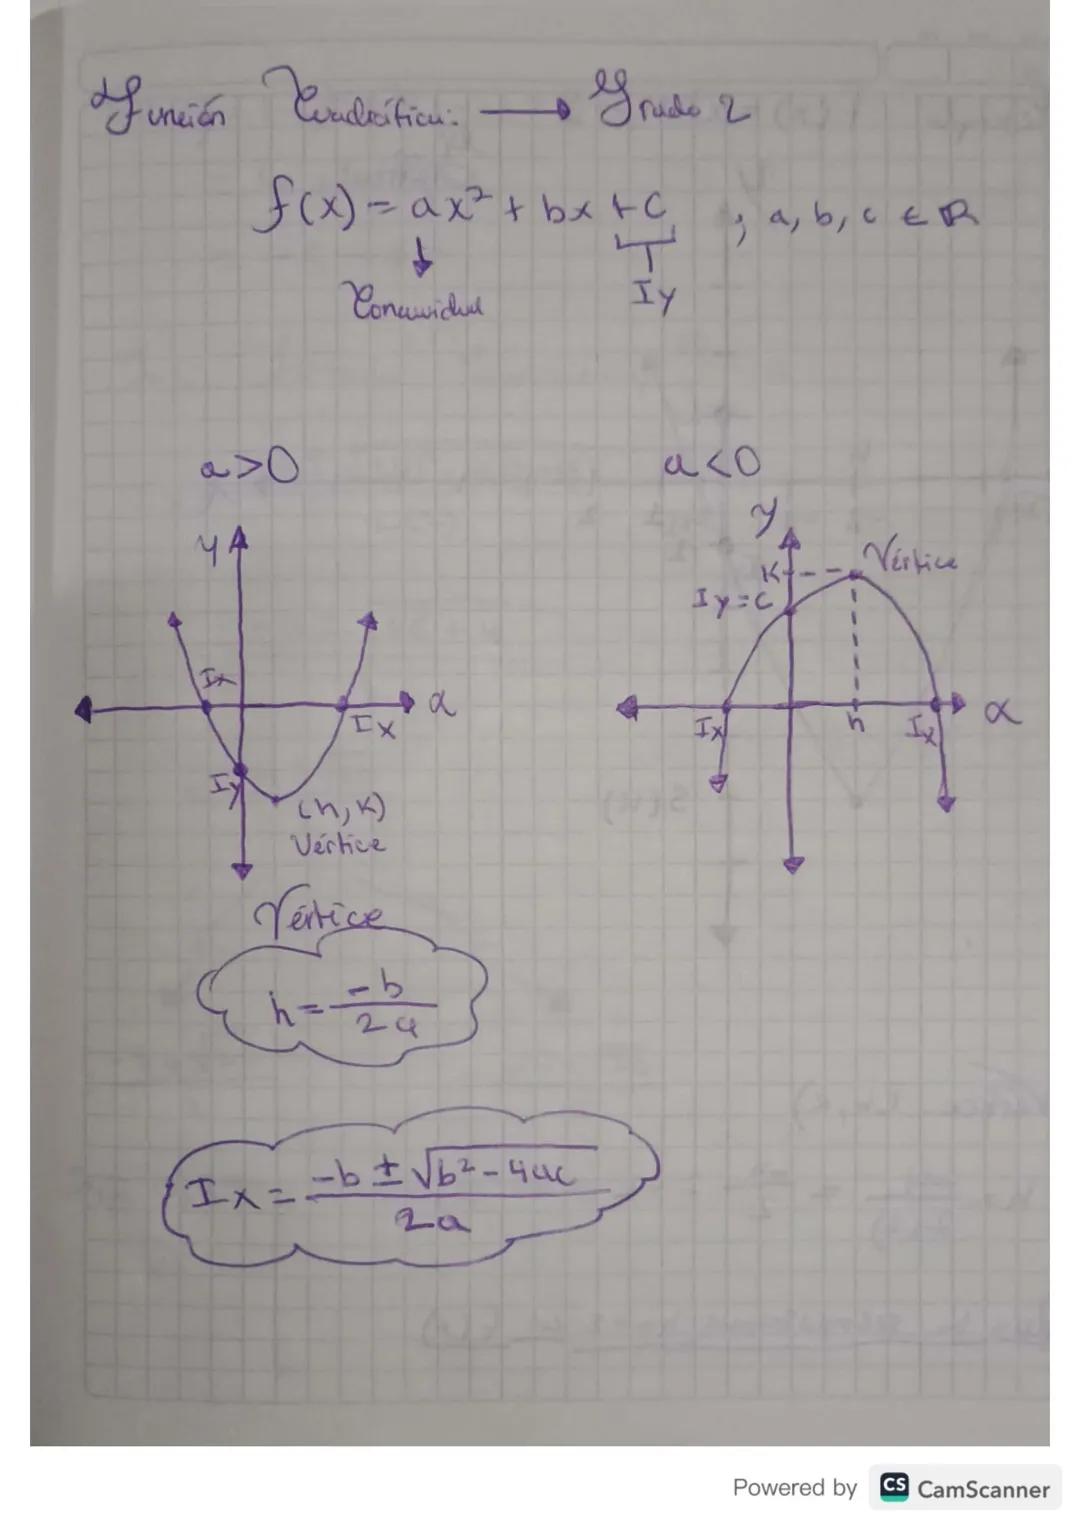 Función Cuadrática: → Grado 2
f(x) = ax² + bx + c ; a, b, c ∈ ℝ
Concavidad
Iy
a > 0
a < 0
y
y
K
Vértice
Iy = c
Ix
x
Ix
Iy
(h, k)
Vértice
Ix
h
Ix
x
Vértice
h = -b / 2a
Ix = -b ± √b² - 4ac / 2a
Powered by CS CamScanner